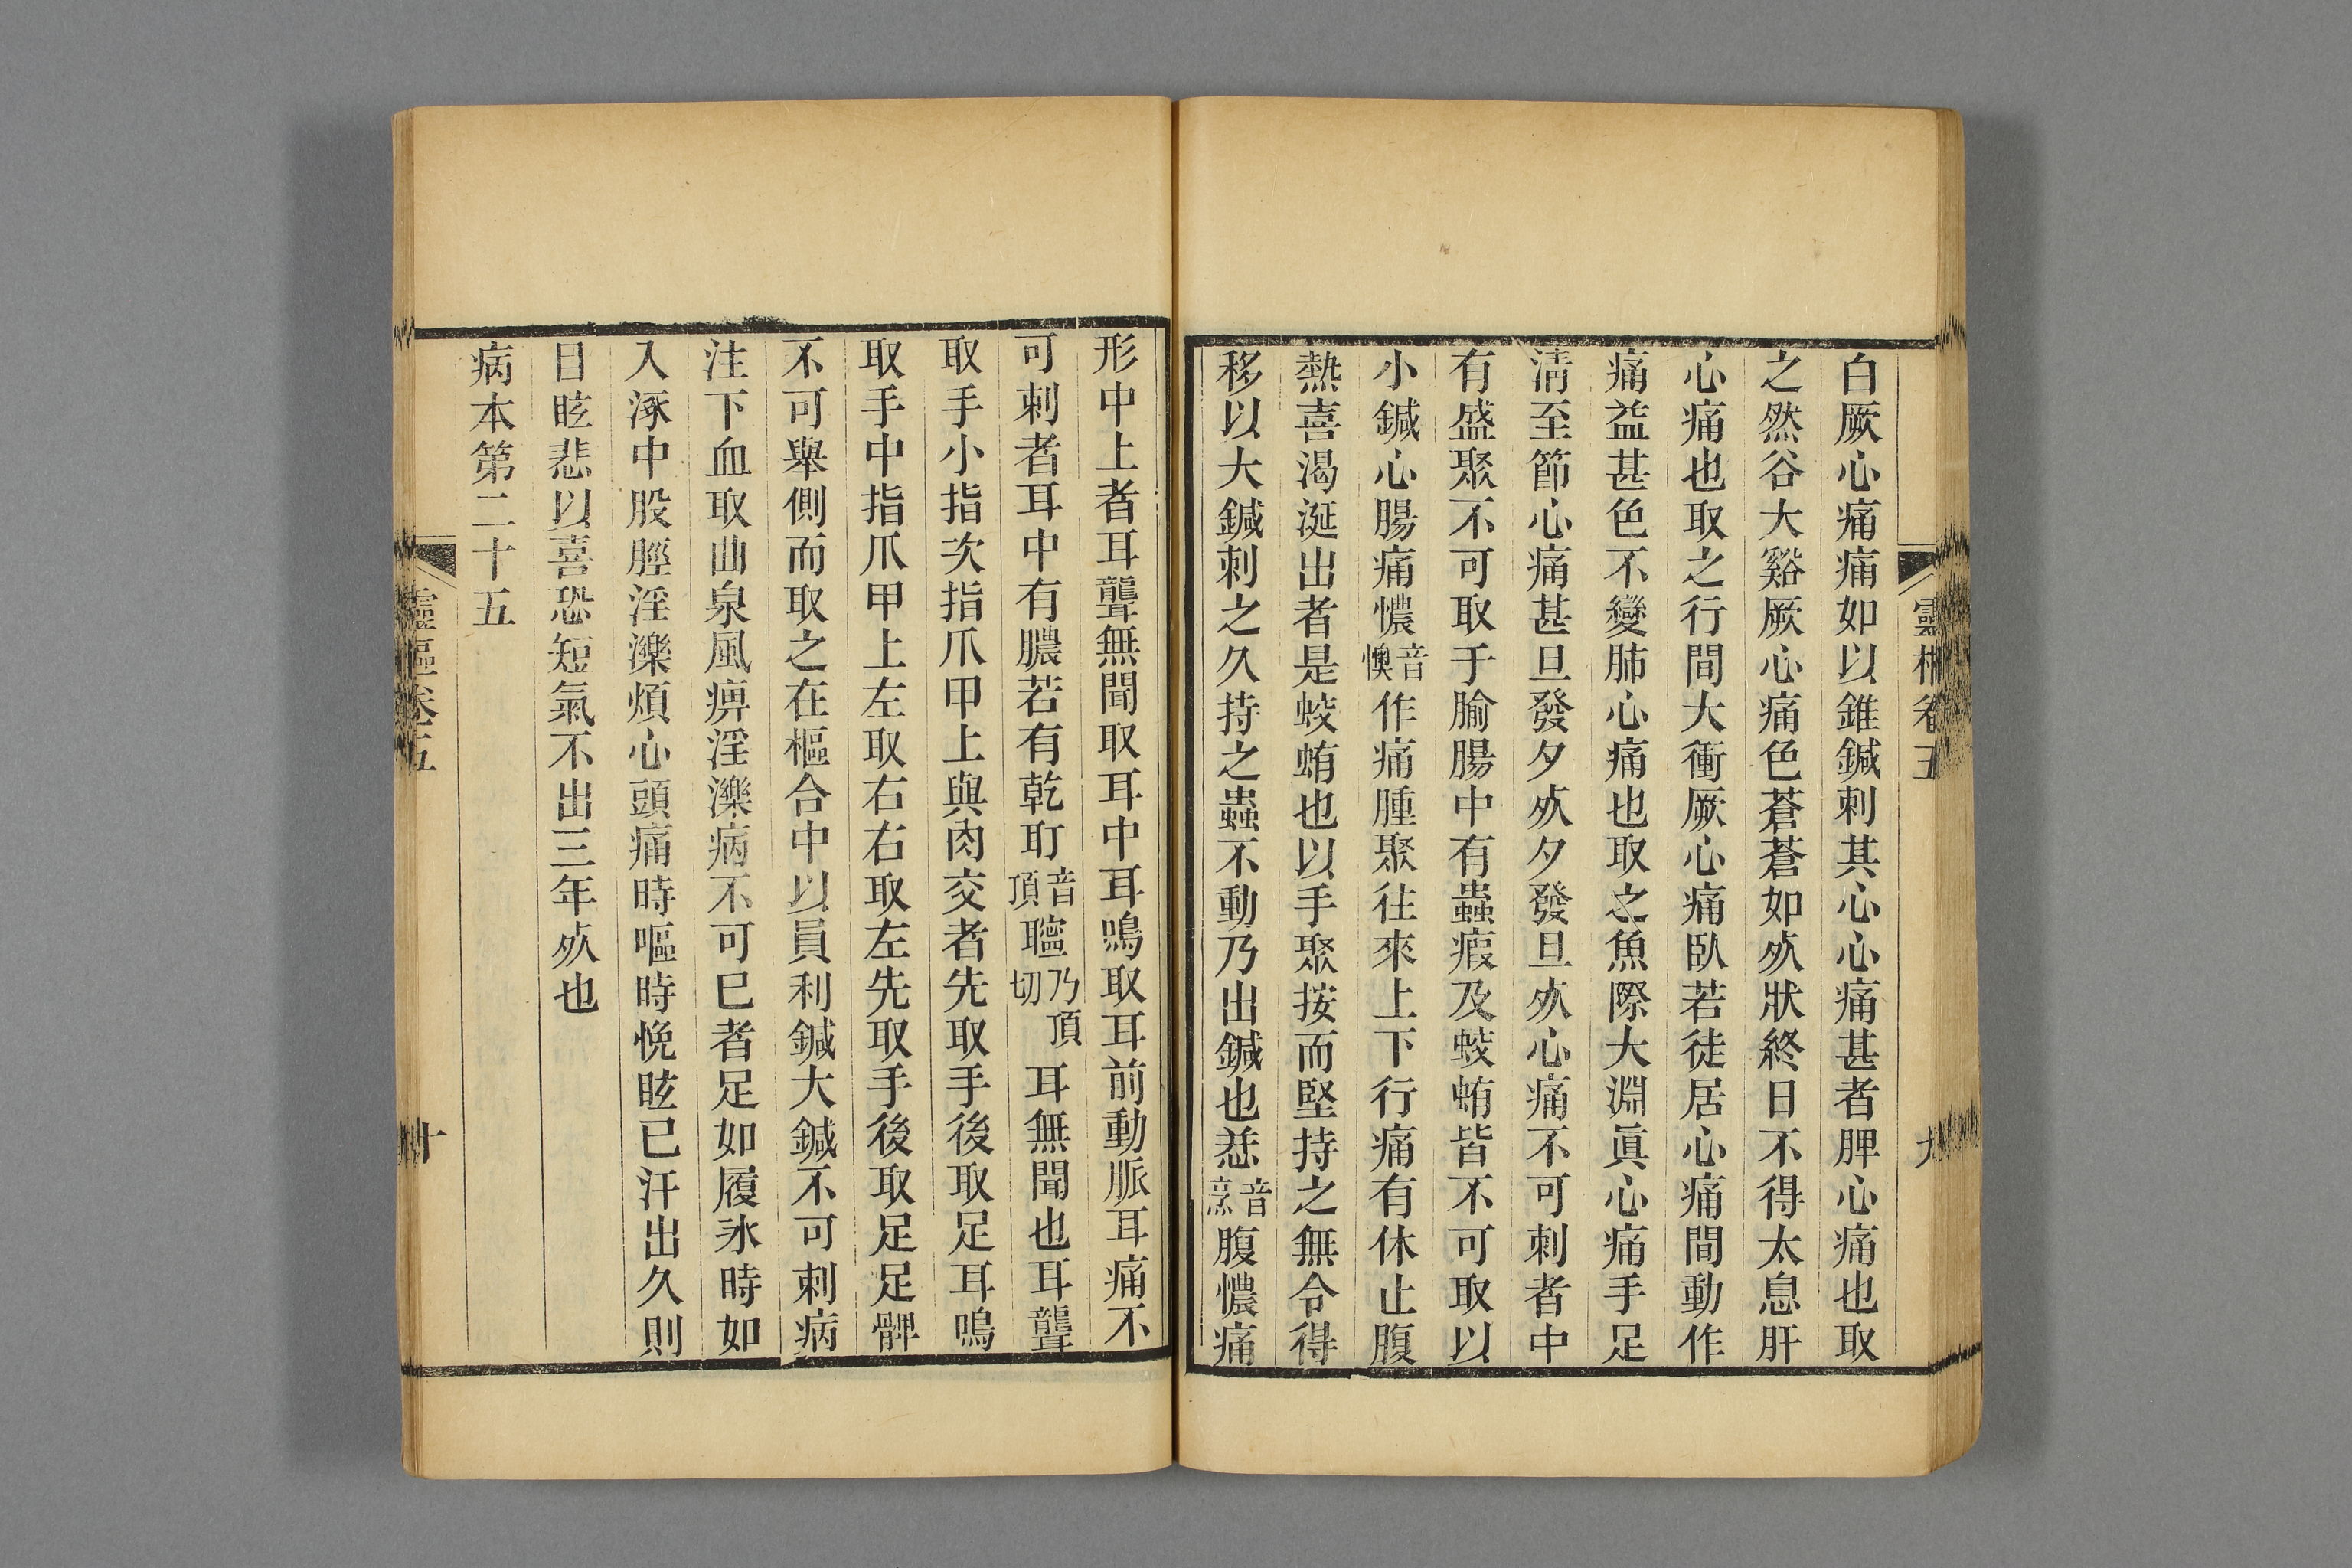 靈樞卷五
九
白厥心痛痛如以錐鍼刺其心心痛甚者脾心痛也取
之然谷大谿厥心痛色蒼蒼如㱙狀終日不得太息肝
心痛也取之行間大衝厥心痛臥若徒居心痛間動作
痛益甚色不變肺心痛也取之魚際大淵眞心痛手足
淸至節心痛甚旦發夕㱙夕發旦㱙心痛不可刺者中
有盛聚不可取于腧腸中有蟲瘕及蛟蛕皆不可取以
小鍼心腸痛憹音懊作痛腫聚往來上下行痛有休止腹
熱喜渴涎出者是蛟蛕也以手聚按而堅持之無令得
移以大鍼刺之久持之蟲不動乃出鍼也恙音烹腹憹痛
形中上者耳聾無聞取耳中耳鳴取耳前動脈耳痛不
可刺者耳中有膿若有乾耵音頂聹乃頂切耳無聞也耳聾
取手小指次指爪甲上與肉交者先取手後取足耳鳴
取手中指爪甲上左取右右取左先取手後取足足髀
不可舉側而取之在樞合中以員利鍼大鍼不可刺病
注下血取曲泉風痹淫濼病不可巳者足如履氷時如
入涿中股脛淫濼煩心頭痛時嘔時悗眩已汗出久則
目眩悲以喜恐短氣不出三年㱙也
病本第二十五
靈樞卷五
十